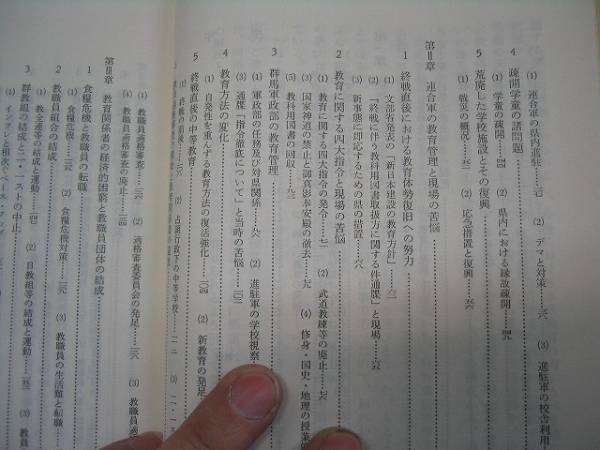 (1) 連合軍の県内進駐
(2) デマと対策
(3) 進駐軍の校舎利用
4 疎開学童の諸問題
(1) 学童の疎開
(2) 県内における縁故疎開
5 荒廃した学校施設とその復興
(1) 戦災の概況
(2) 応急措置と復興
第Ⅱ章 連合軍の教育管理と現場の苦悩
1 終戦直後における教育体勢復旧への努力
(1) 文部省発表の「新日本建設の教育方針」
(2) 「終戦に伴う教科用図書取扱方に関する件通牒」と現場
(3) 新事態に即応するための県の措置
2 教育に関する四大指令と現場の苦悩
(1) 教育に関する四大指令の発令
(2) 武道教練等の廃止
(3) 国家神道の禁止と御真影奉安殿の撤去
(4) 修身・国史・地理の授業
(5) 教科用図書の回収
3 群馬軍政部の教育管理
(1) 軍政部の任務及び対県関係
(2) 進駐軍の学校視察
(3) 通牒「指令徹底について」と当時の苦悩
4 教育方法の変化
(1) 自発性を重んずる教育方法の復活強化
(2) 新教育の発足
5 終戦直後の中等教育
(1) 終戦の前後
(2) 占領行政下の中等学校
(1) 教職員適格審査
(2) 適格審査委員会の発足
(3) 教職員適
(4) 教職員適格審査の廃止
第Ⅲ章 教育関係者の経済的困窮と教職員団体の結成
1 食糧危機と教職員の転職
(1) 食糧危機
(2) 食糧危機対策
(3) 教職員の生活難と転職
2 教職員組合の結成
(1) 教全連等の結成と運動
(2) 日教組等の結成と運動
(3) 教職員
3 群教組の結成と二・一ストの中止
(1) インフレと相次ぐベース・アップ